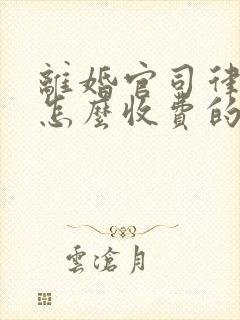 離婚官司律
怎麼收費的
雲滄月